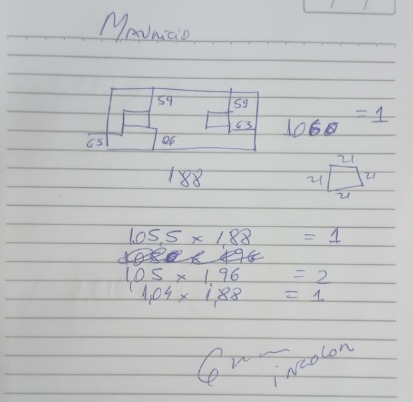 Mauricio
59 59
63
65 06
1060 = 1
188
21
21 21
21
1,05,5 x 1,88 = 1
1,05 x 1,96 = 2
1,04 x 1,88 = 1
6mm incolor